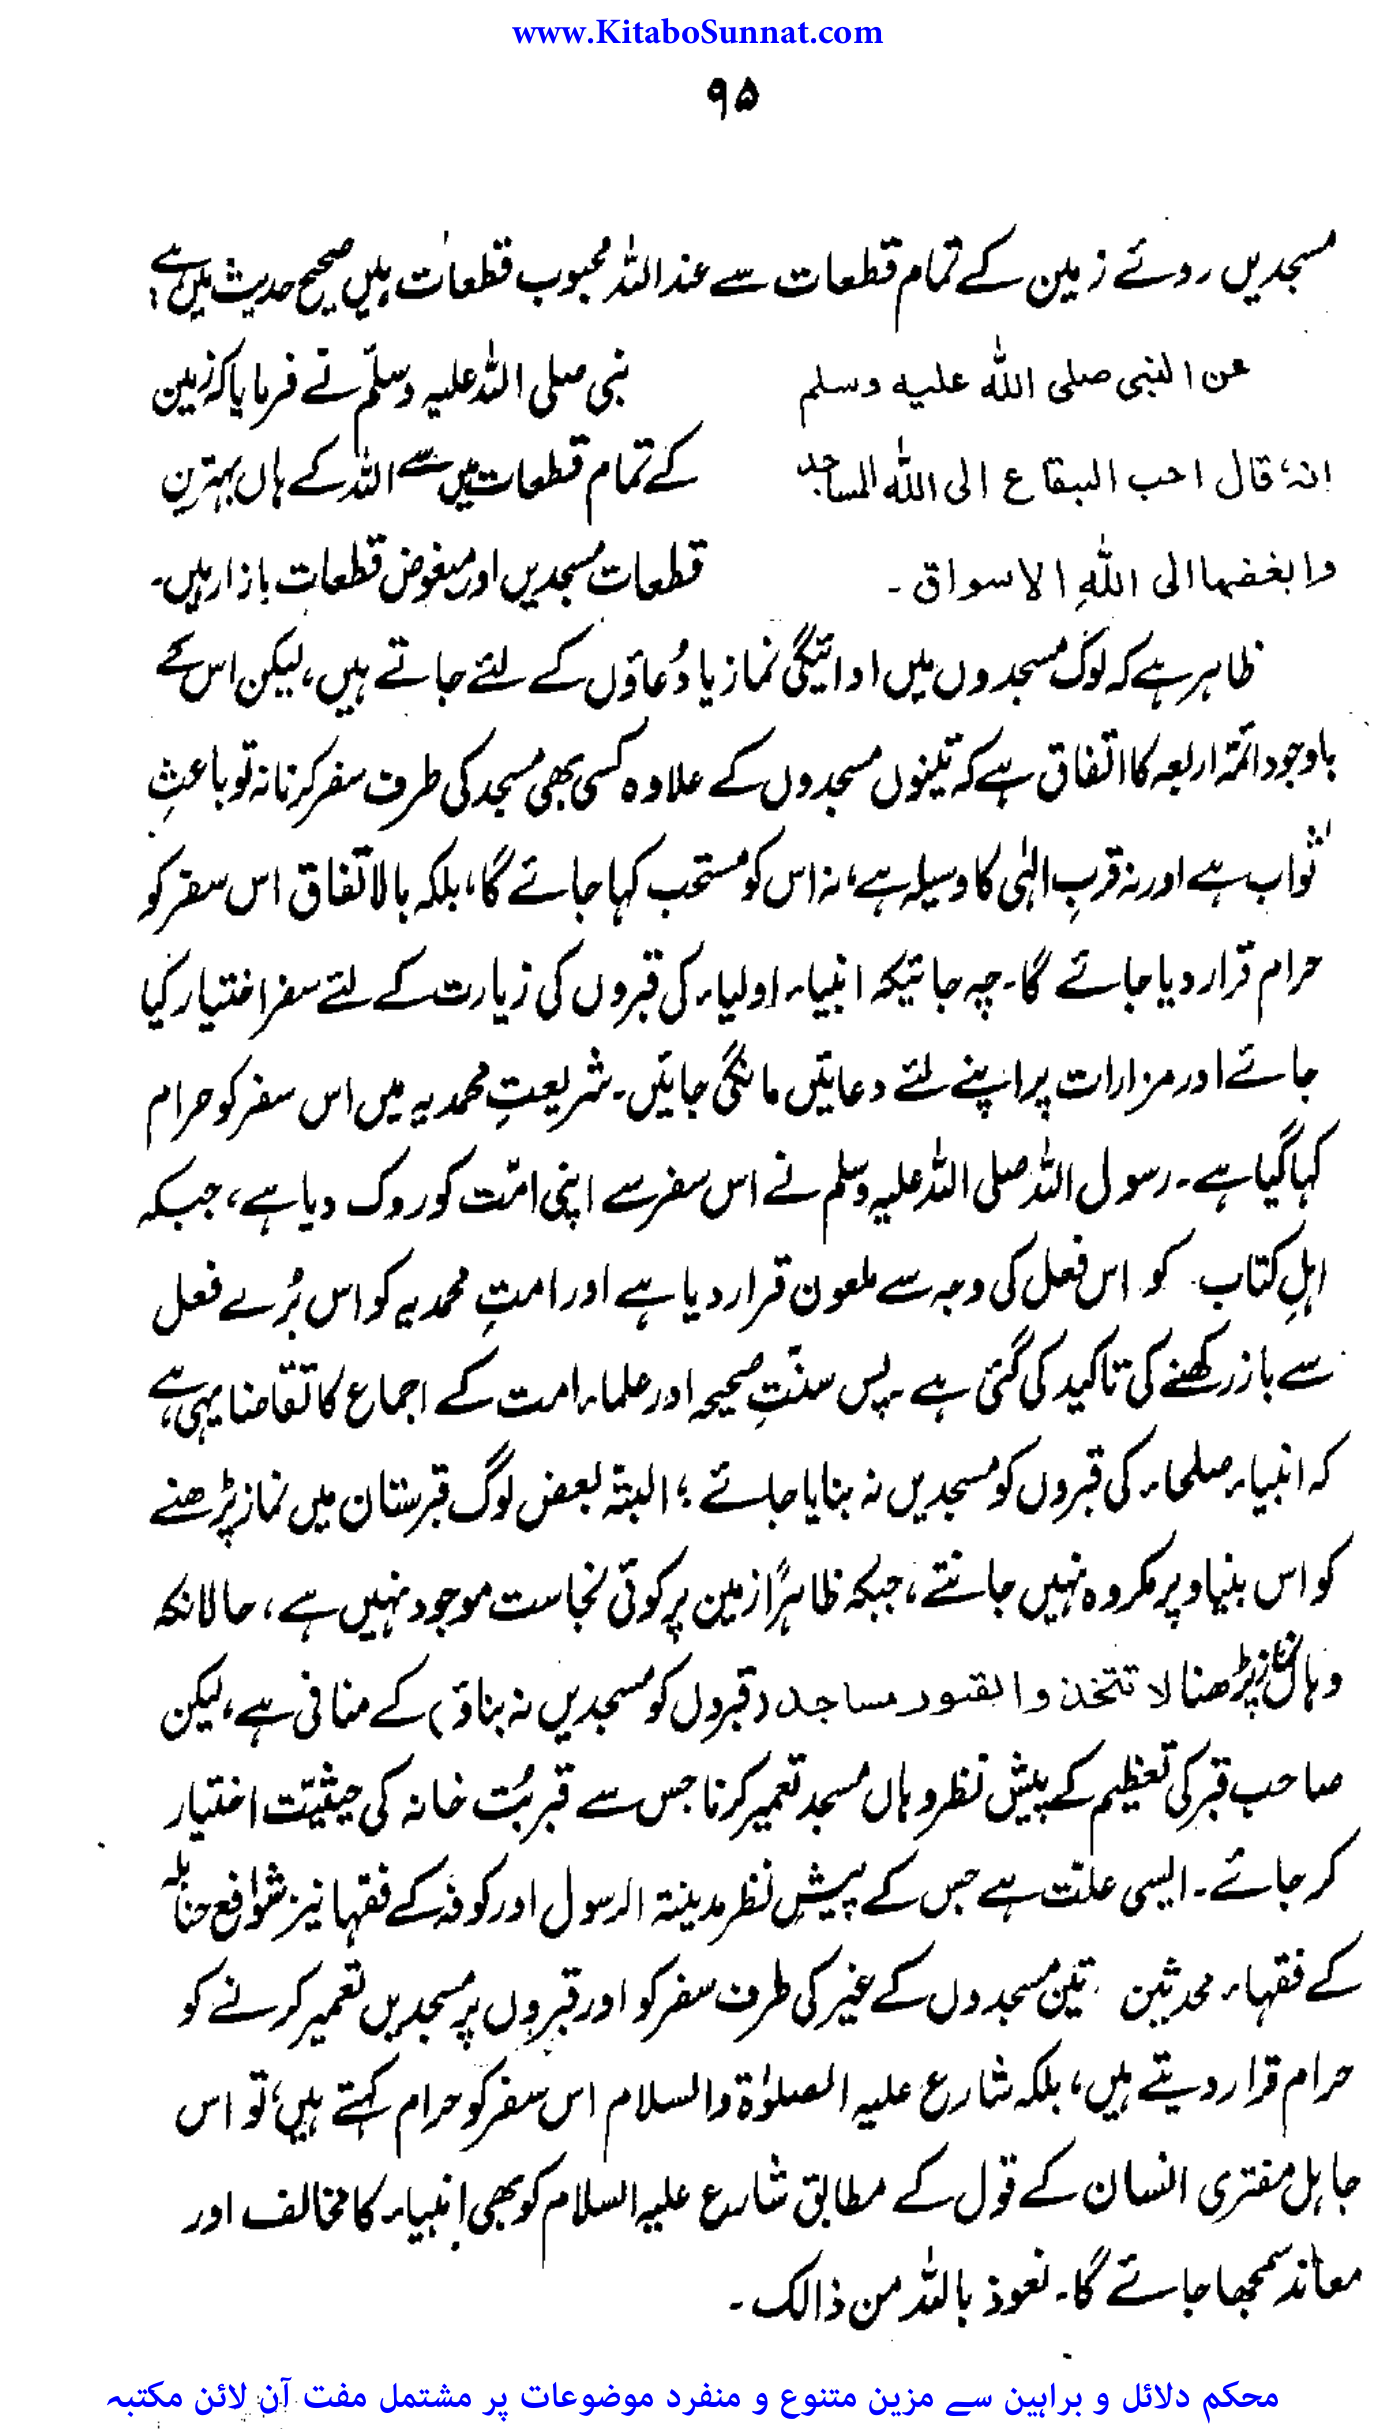 www.KitaboSunnat.com
۹۵
مسجدیں روئے زمین کے تمام قطعات سے عنداللہ محبوب قطعات ہیں صحیح حدیث میں ہے؛
عن النبی صلی اللہ علیہ وسلم
انہٗ قال احب البقاع الی اللہ المساجد
وابغضہا الی اللہِ الاسواق۔
نبی صلی اللہ علیہ وسلّم نے فرمایا کہ زمین
کے تمام قطعات میں سے اللہ کے ہاں بہترین
قطعات مسجدیں اور مبغوض قطعات بازار ہیں۔
ظاہر ہے کہ لوگ مسجدوں میں ادائیگی نماز یا دُعاؤں کے لئے جاتے ہیں، لیکن اس کے
باوجود ائمّۂ اربعہ کا اتفاق ہے کہ تینوں مسجدوں کے علاوہ کسی بھی مسجد کی طرف سفر کرنا نہ تو باعثِ
ثواب ہے اور نہ قربِ الٰہی کا وسیلہ ہے، نہ اس کو مستحب کہا جائے گا، بلکہ بالاتفاق اس سفر کو
حرام قرار دیا جائے گا۔ چہ جائیکہ انبیاء اولیاء کی قبروں کی زیارت کے لئے سفر اختیار کیا
جائے اور مزارات پر اپنے لئے دعائیں مانگی جائیں۔ شریعتِ محمدیہ میں اس سفر کو حرام
کہا گیا ہے۔ رسول اللہ صلی اللہ علیہ وسلم نے اس سفر سے اپنی امّت کو روک دیا ہے، جبکہ
اہلِ کتاب کو اس فعل کی وجہ سے ملعون قرار دیا ہے اور امتِ محمدیہ کو اس بُرے فعل
سے باز رکھنے کی تاکید کی گئی ہے۔ پس سنّتِ صحیحہ اور علماء امت کے اجماع کا تقاضا یہی ہے،
کہ انبیاء صلحاء کی قبروں کو مسجدیں نہ بنایا جائے؛ البتہ بعض لوگ قبرستان میں نماز پڑھنے
کو اس بنیاد پر مکروہ نہیں جانتے، جبکہ ظاہرًا زمین پر کوئی نجاست موجود نہیں ہے، حالانکہ
وہاں نماز پڑھنا لا تتخذوا القبور مساجد (قبروں کو مسجدیں نہ بناؤ) کے منافی ہے، لیکن
صاحب قبر کی تعظیم کے پیش نظر وہاں مسجد تعمیر کرنا جس سے قبر بُت خانہ کی حیثیّت اختیار
کر جائے۔ ایسی علّت ہے جس کے پیشِ نظر مدینۃ الرسول اور کوفہ کے فقہا نیز شوافع حنابلہ
کے فقہاء محدثین تین مسجدوں کے غیر کی طرف سفر کو اور قبروں پر مسجدیں تعمیر کرنے کو
حرام قرار دیتے ہیں، بلکہ شارع علیہ الصلوٰۃ والسلام اس سفر کو حرام کہتے ہیں، تو اس
جاہل مفتری انسان کے قول کے مطابق شارع علیہ السلام کو بھی انبیاء کا مخالف اور
معاند سمجھا جائے گا۔ نعوذ باللہ من ذالک۔
محکم دلائل و براہین سے مزین متنوع و منفرد موضوعات پر مشتمل مفت آن لائن مکتبہ